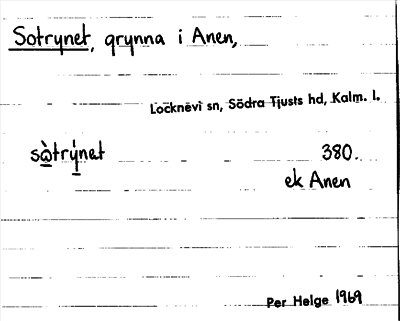 Sotrynet, grynna i Anen,
Locknevi sn, Södra Tjusts hd, Kalm. l.
sòtrýnet 380.
ek Anen
Per Helge 1969